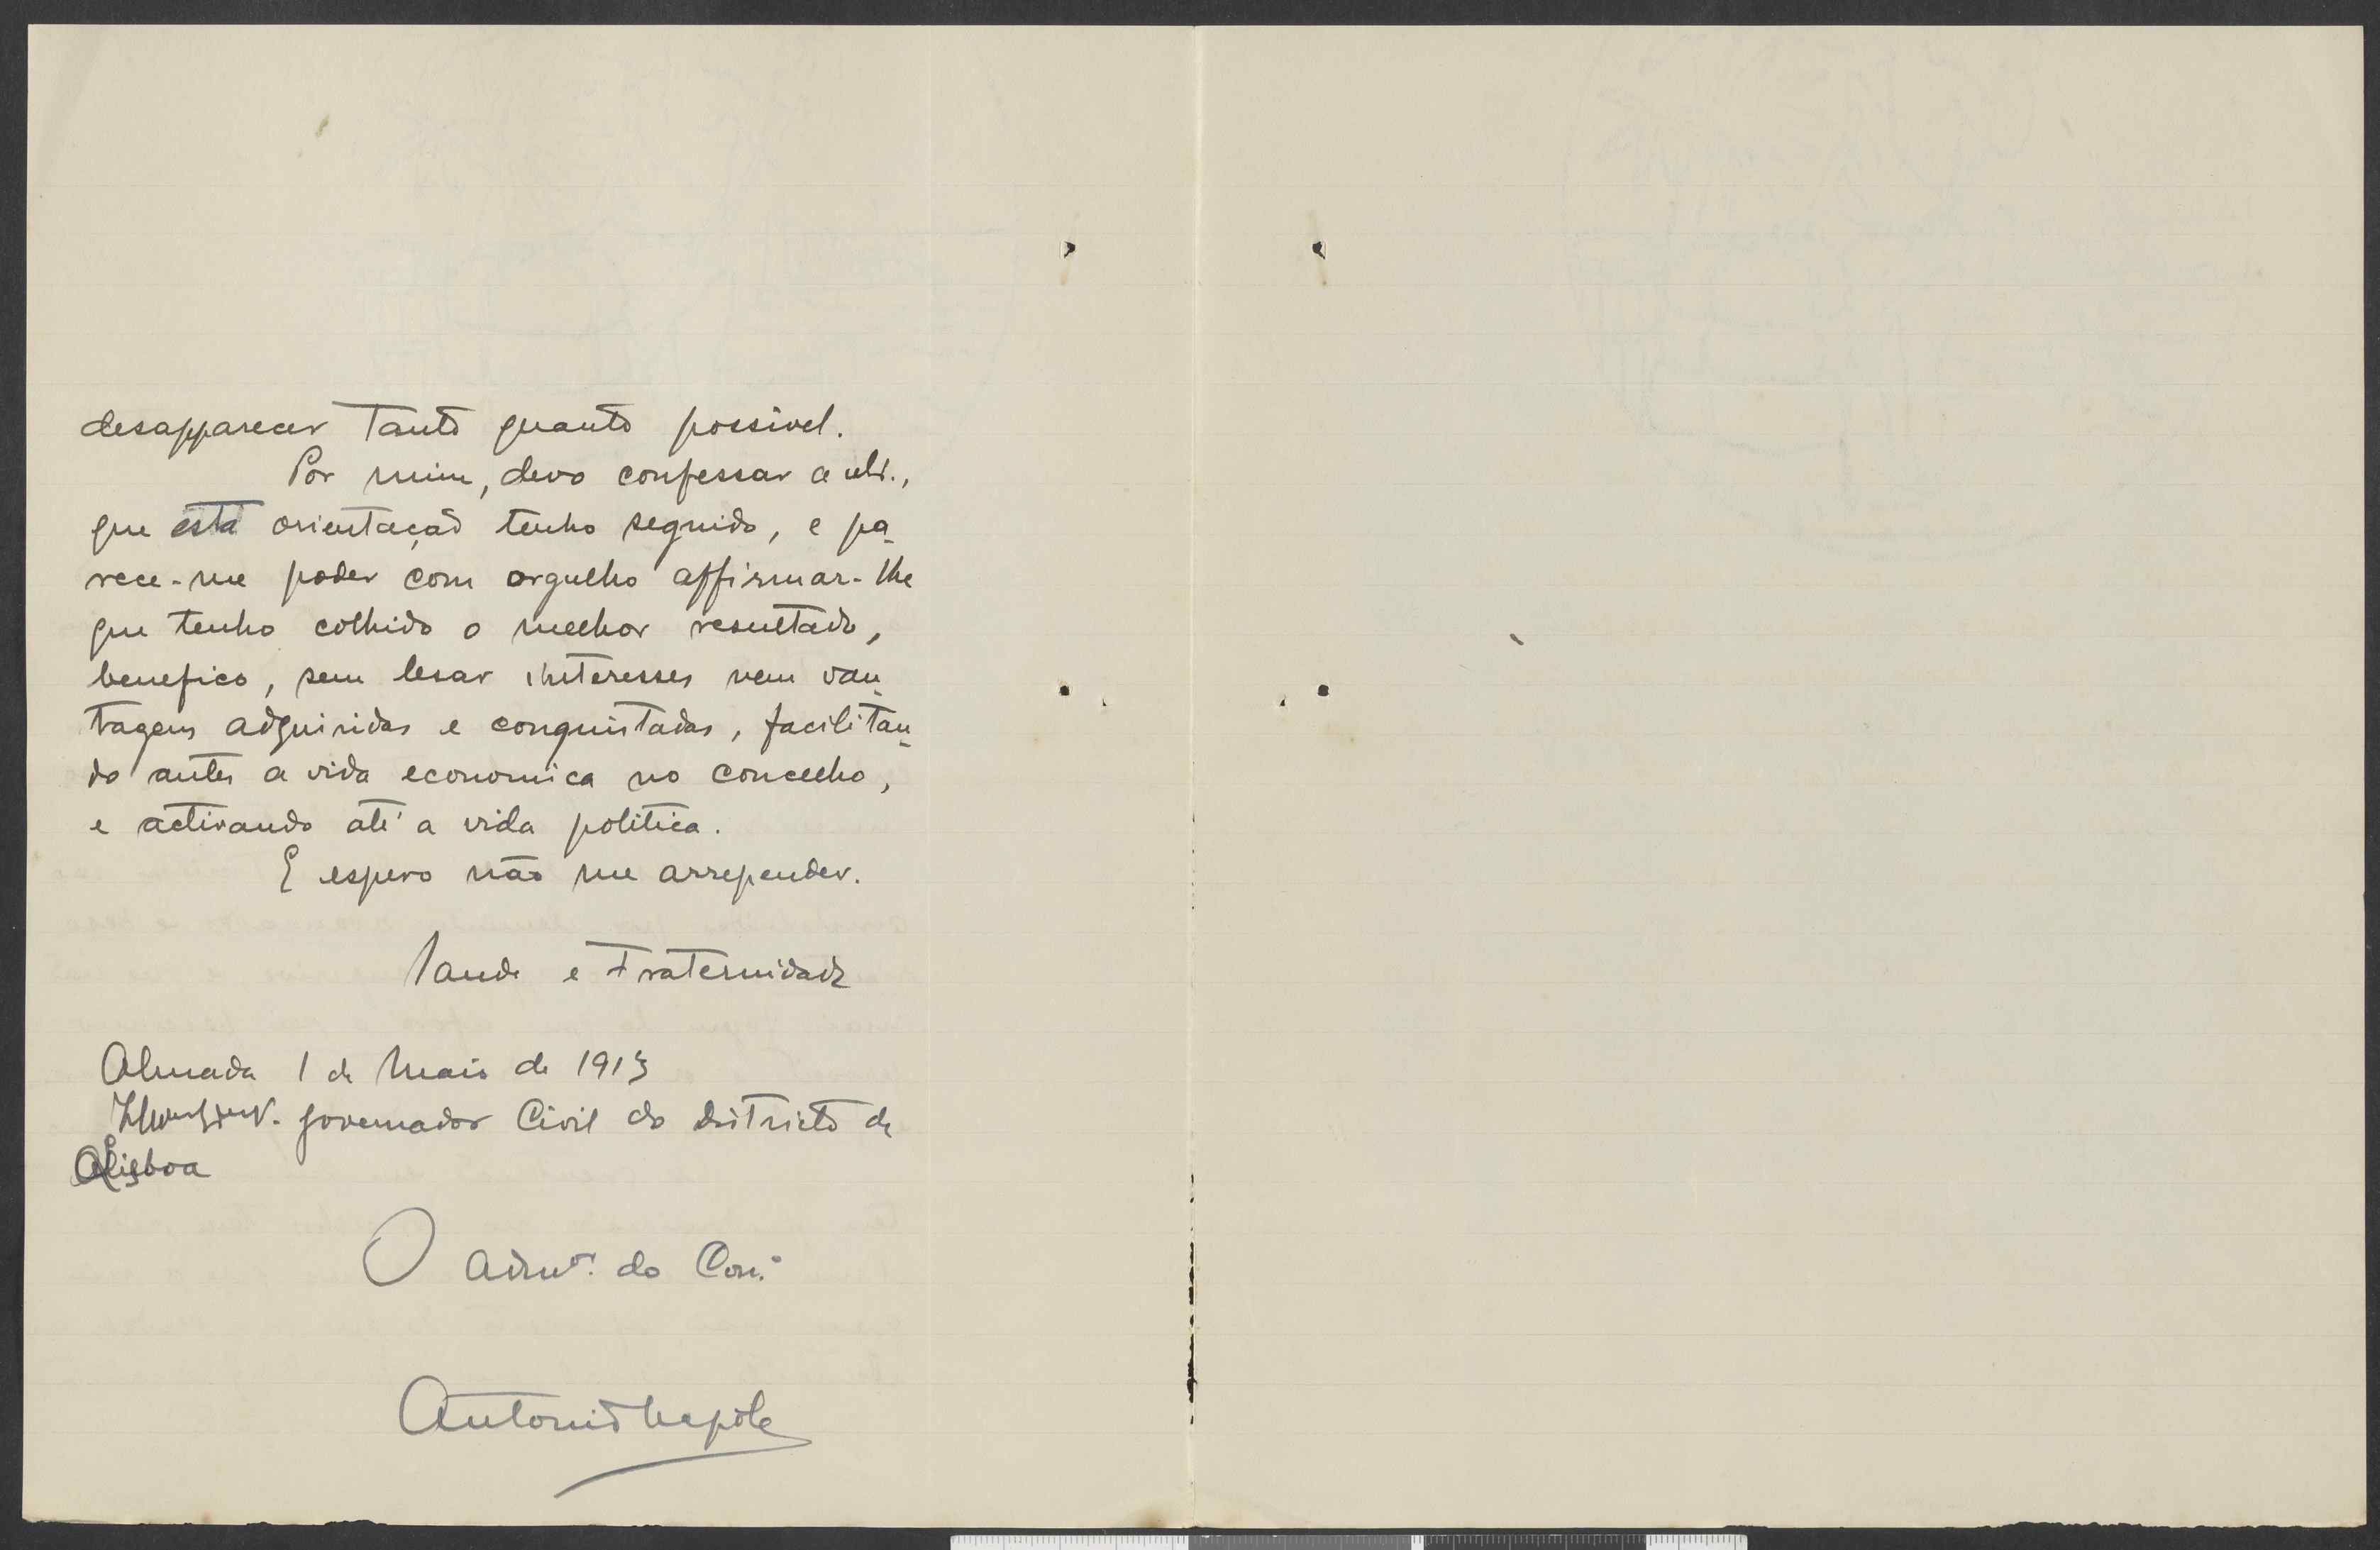 desapparecer tanto quanto possivel.
Por mim, devo confessar a
que esta orientação tenho seguido, e pa-
rece-me poder com orgulho affirmar-lhe
que tenho colhido o melhor resultado,
benefico, sem lesar interesses nem van-
tagens adquiridas e conquistadas, facilitan-
do antes a vida economica no concelho,
e activando até a vida politica.
E espero não me arrepender.
Saude e Fraternidade
Almada 1 de Maio de 1913
Governador Civil do Districto de
Lisboa
O Admor. do Con.º
Antonio